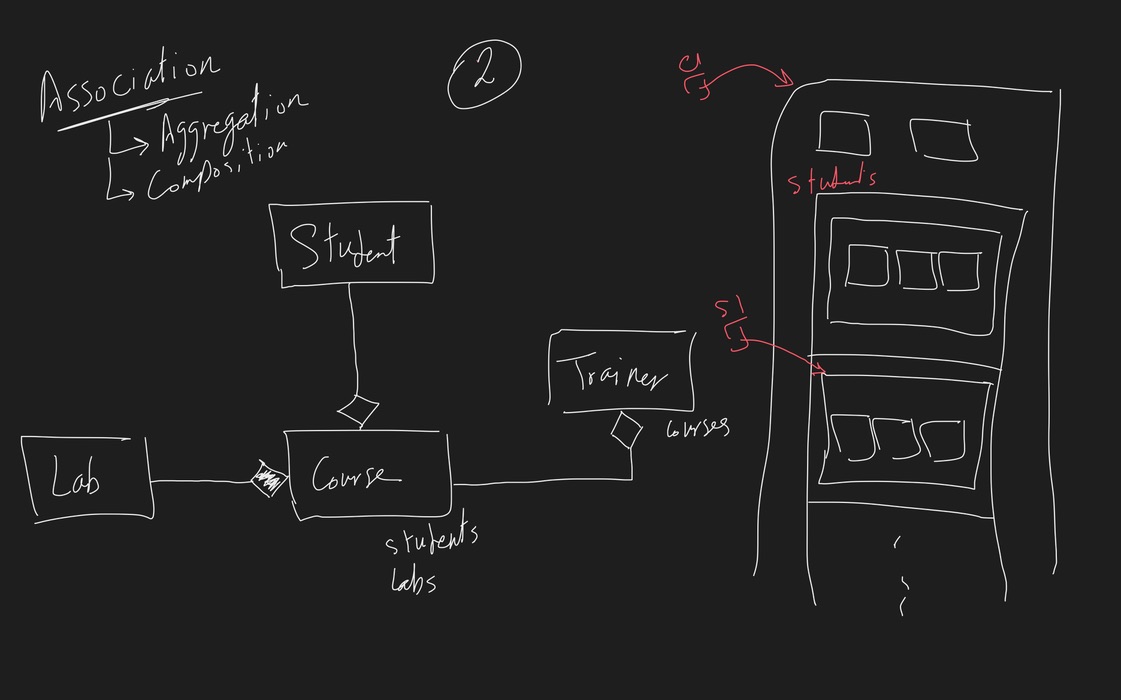 Association
Aggregation
Composition
2
Student
Trainer
courses
Lab
Course
students
Labs
c1
students
s1